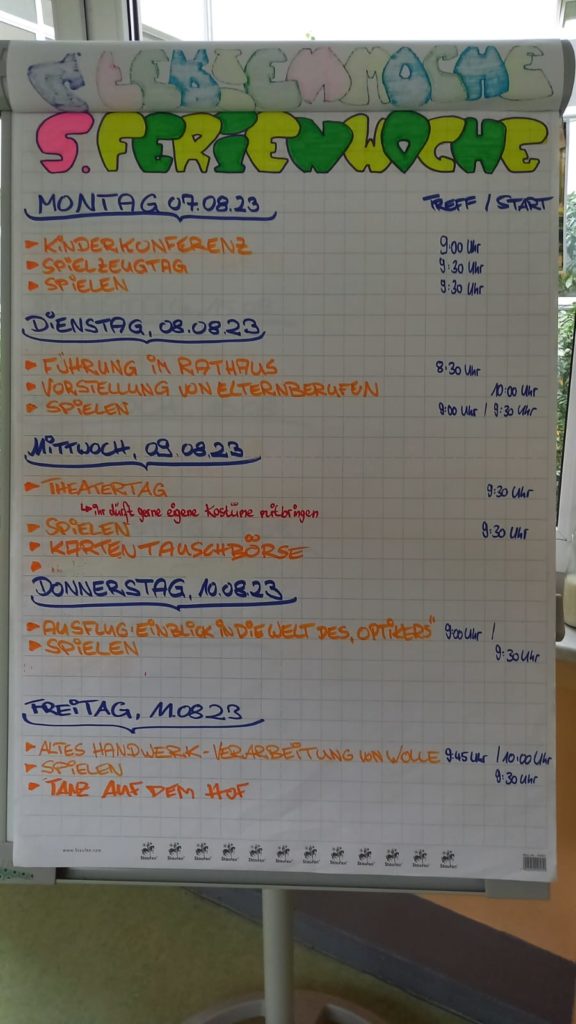 FERIENWOCHE
5. FERIENWOCHE
MONTAG 07.08.23 TREFF / START
► KINDERKONFERENZ 9:00 Uhr
► SPIELZEUGTAG 9:30 Uhr
► SPIELEN 9:30 Uhr
DIENSTAG, 08.08.23
► FÜHRUNG IM RATHAUS 8:30 Uhr
► VORSTELLUNG VON ELTERNBERUFEN 10:00 Uhr
► SPIELEN 9:00 Uhr / 9:30 Uhr
MITTWOCH, 09.08.23
► THEATERTAG 9:30 Uhr
↳ ihr dürft gerne eigene Kostüme mitbringen
► SPIELEN 9:30 Uhr
► KARTENTAUSCHBÖRSE
DONNERSTAG, 10.08.23
► AUSFLUG: EINBLICK IN DIE WELT DES „OPTIKERS" 9:00 Uhr /
► SPIELEN 9:30 Uhr
FREITAG, 11.08.23
► ALTES HANDWERK - VERARBEITUNG VON WOLLE 9:45 Uhr / 10:00 Uhr
► SPIELEN 9:30 Uhr
► TANZ AUF DEM HOF
www.Staufen.com Staufen Staufen Staufen Staufen Staufen Staufen Staufen Staufen Staufen Staufen Staufen Staufen